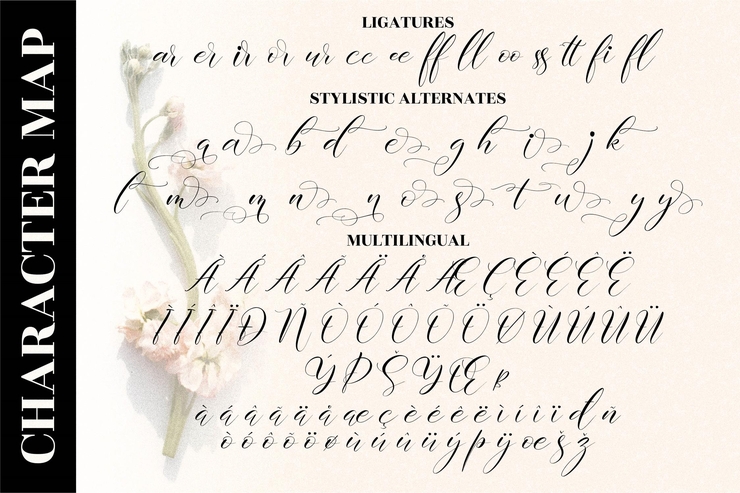 CHARACTER MAP
LIGATURES
ar er ir or ur cc ee ff ll oo ss tt fi fl
STYLISTIC ALTERNATES
a a b d e g h i j k
l m m n n o s t w y y
MULTILINGUAL
À Á Â Ã Ä Å Æ Ç È É Ê Ë
Ì Í Î Ï Ð Ñ Ò Ó Ô Õ Ö Ø Ù Ú Û Ü
Ý Þ Š Ÿ Œ
à á â ã ä å æ ç è é ê ë ì í î ï đ ñ
ò ó ô õ ö ø ù ú û ü ý þ ÿ œ š ž